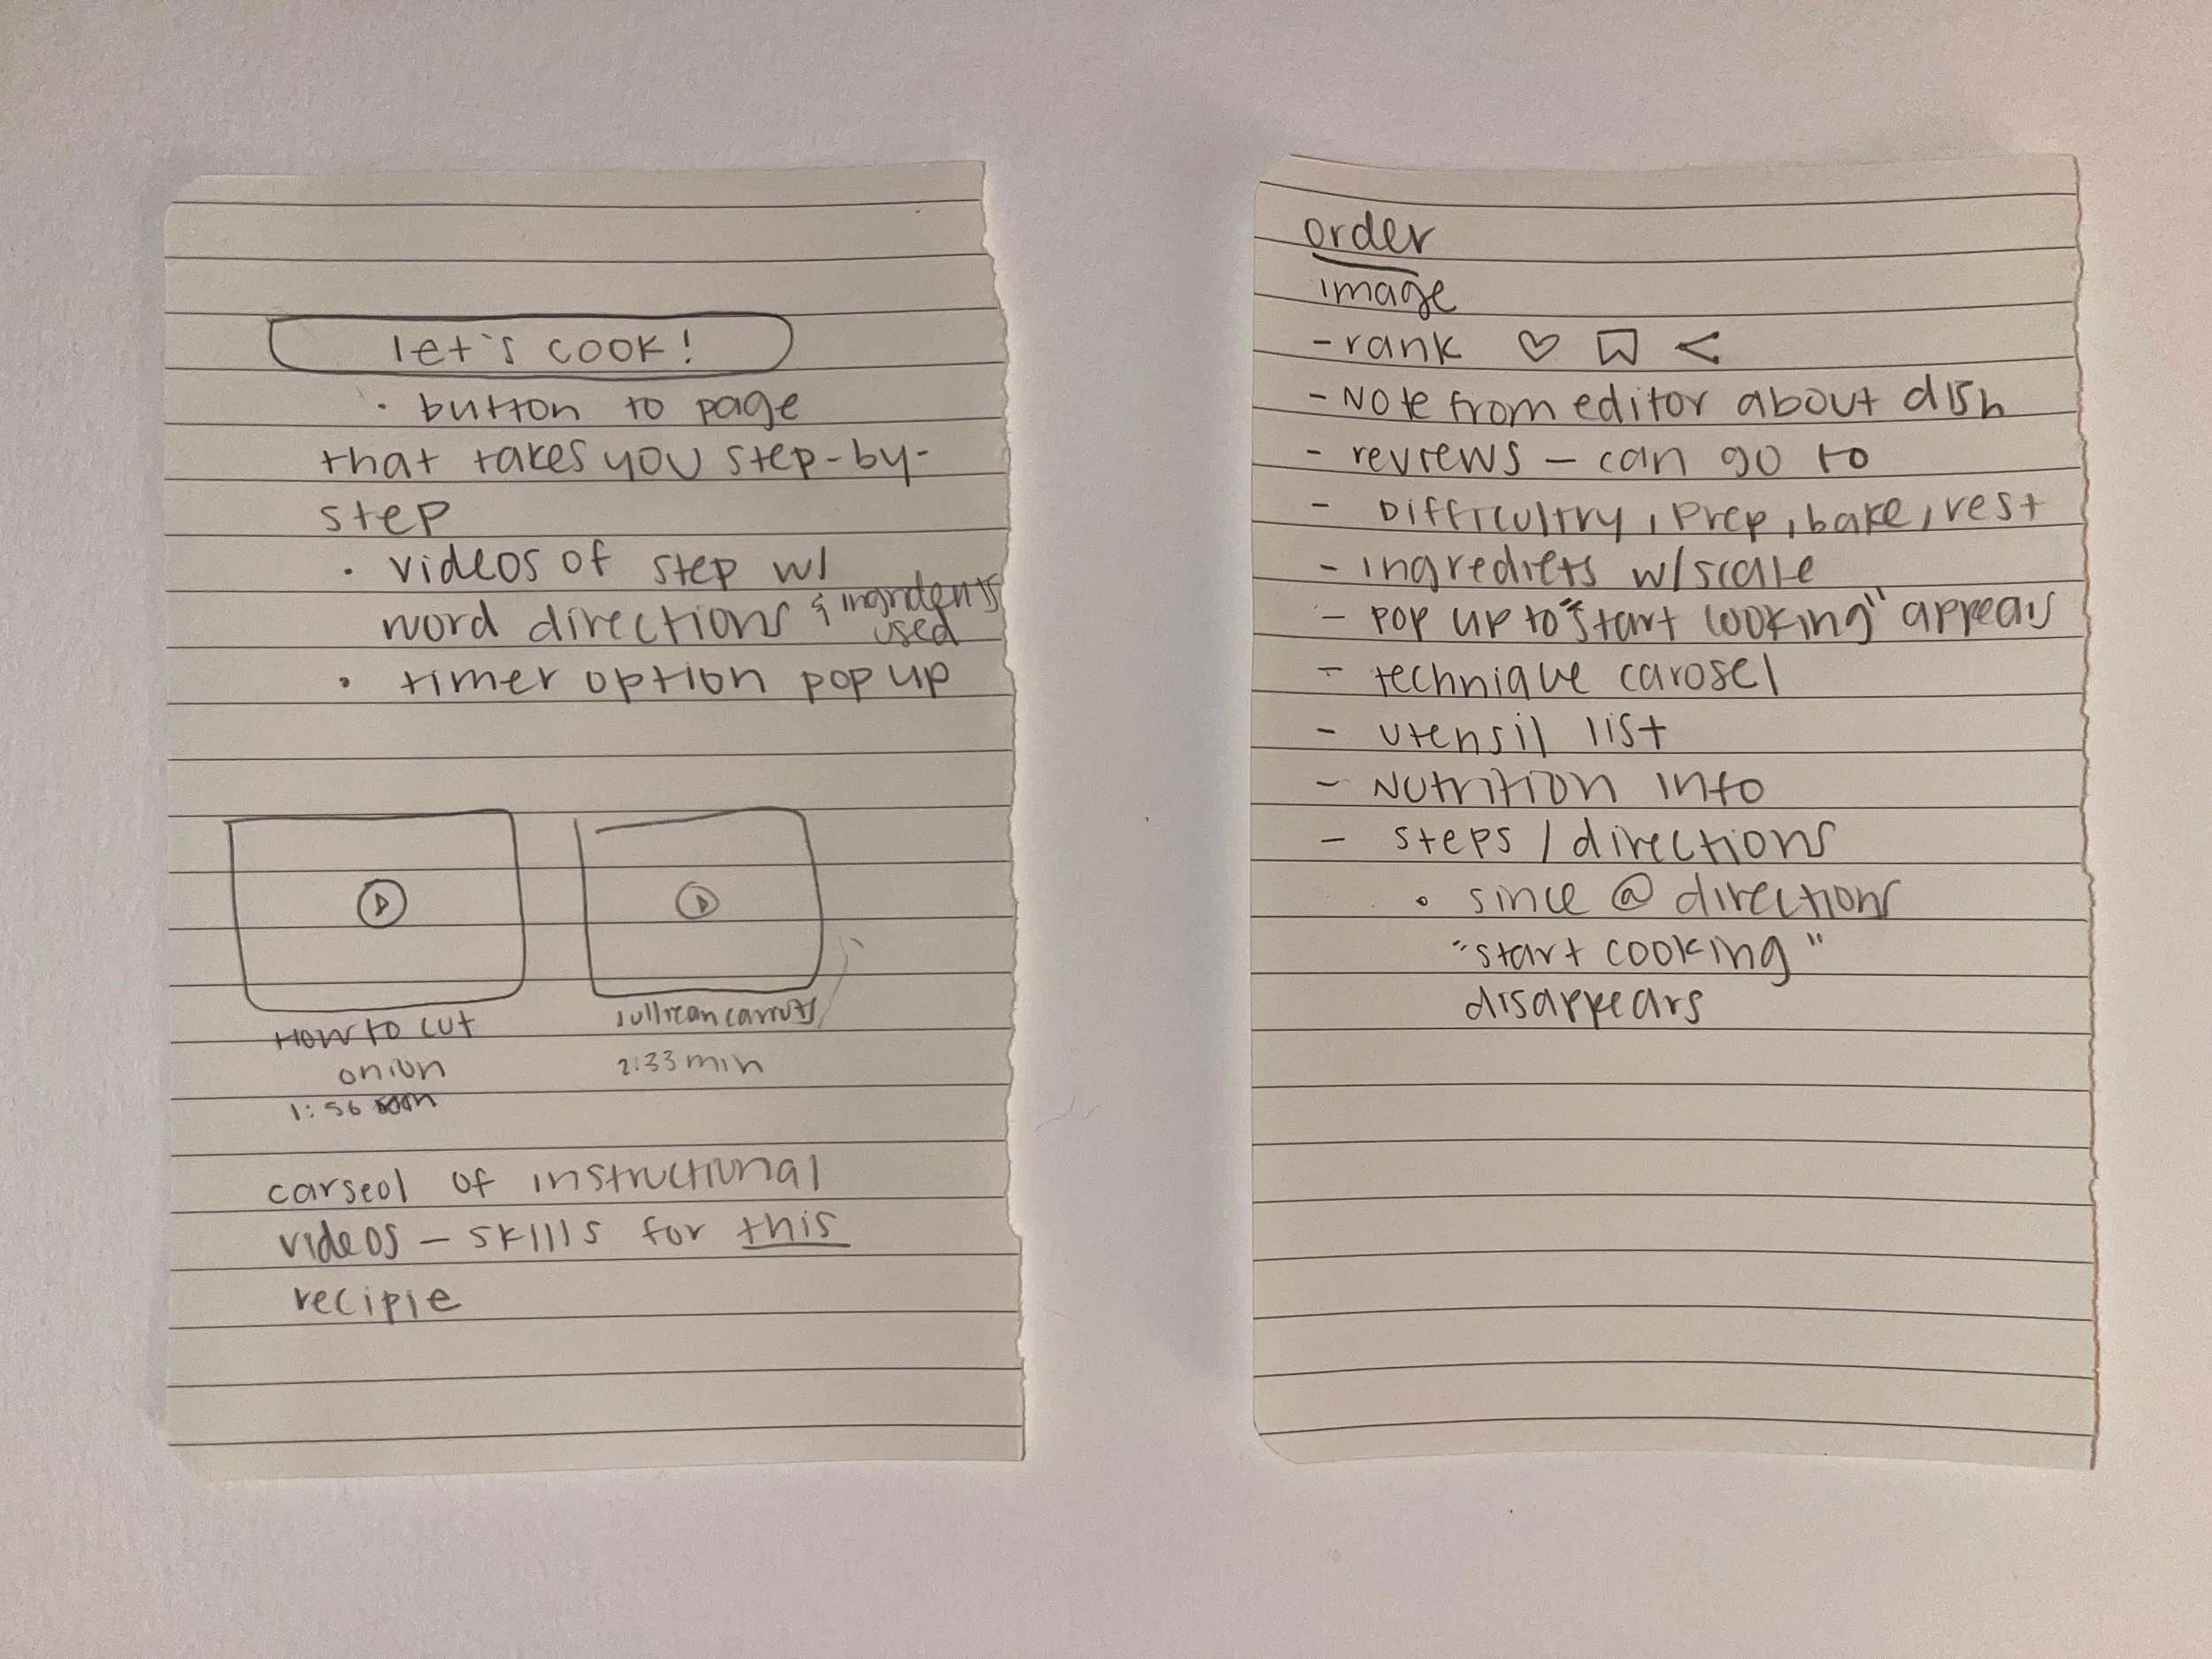 let's cook!
· button to page
that takes you step-by-
step
· videos of step w/
word directions & ingridents
used
· timer option pop up
How to cut
onion
1:56
jullican carrots
2:33 min
carseol of instructional
videos – skills for this
recipie
order
image
- rank
- Note from editor about dish
- reviews – can go to
- Difficultry, Prep, bake, rest
- ingrediets w/scale
- pop up to "start cooking" appears
- technique carosel
- utensil list
- Nutrition info
- steps / directions
· since @ directions
"start cooking"
disappears